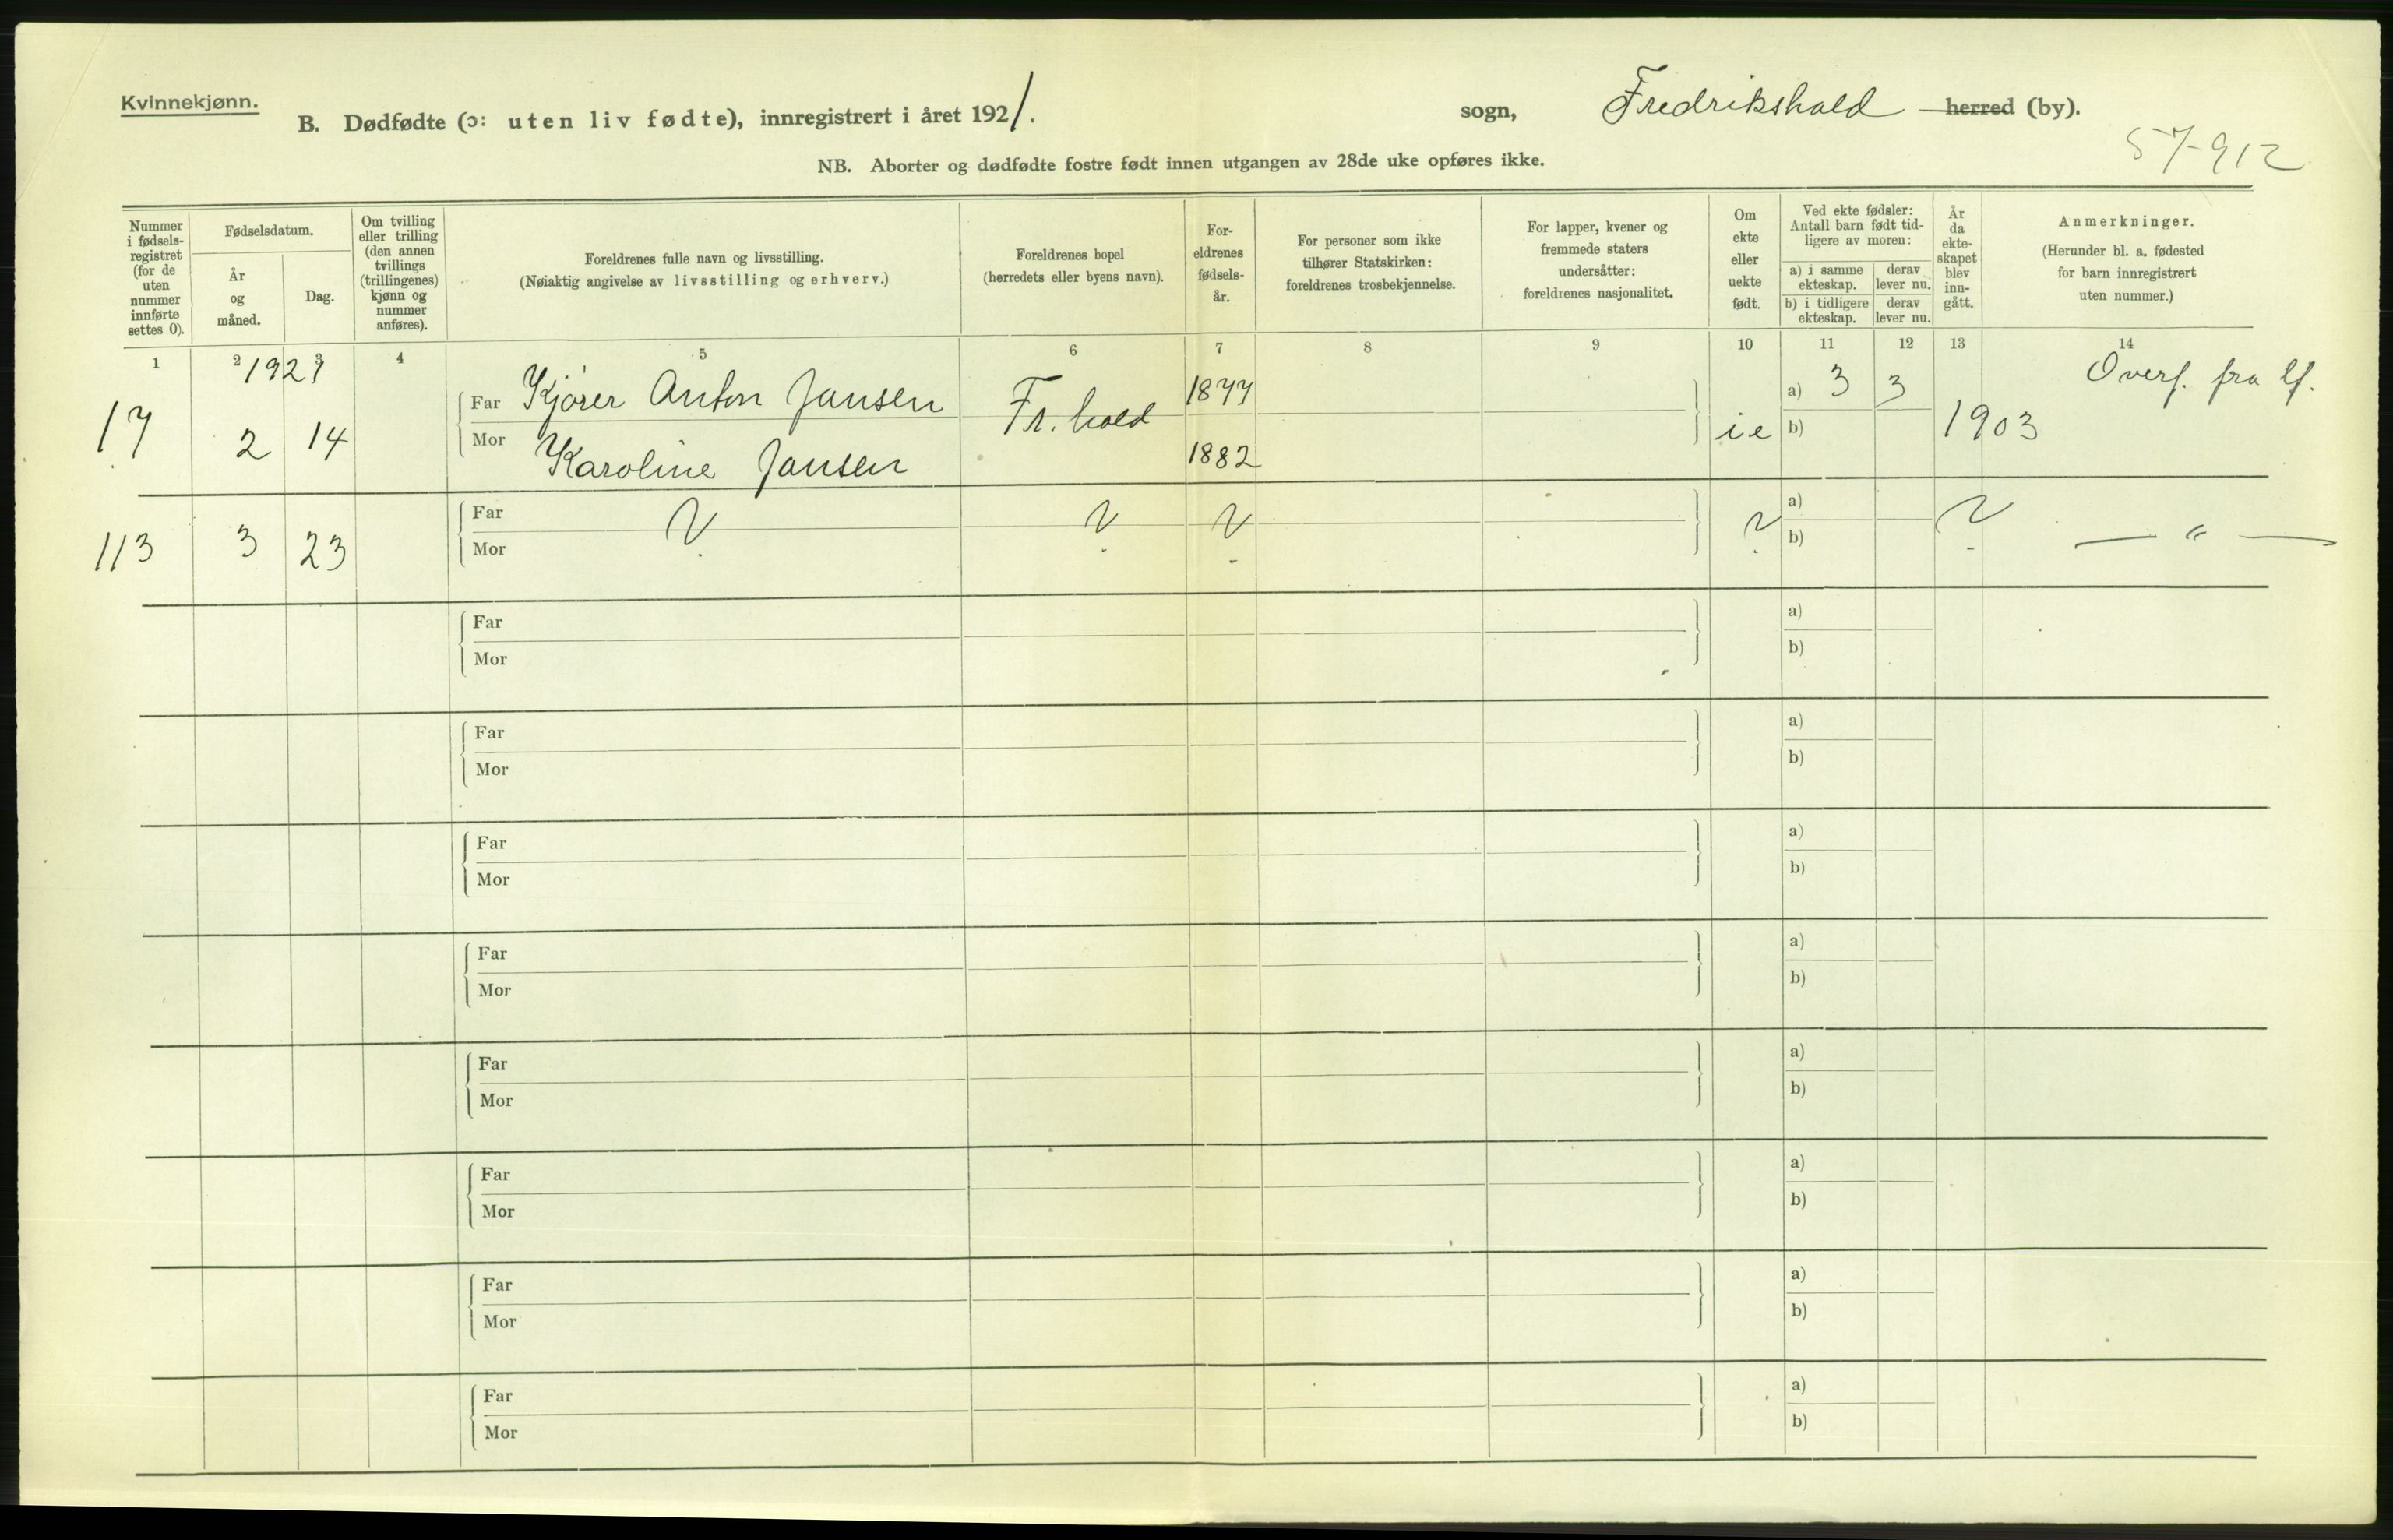 Kvinnekjønn.
B. Dødfødte (ɔ: uten liv fødte), innregistrert i året 1921. sogn, Fredrikshald herred (by).
57-912
NB. Aborter og dødfødte fostre født innen utgangen av 28de uke opføres ikke.
Nummer i fødsels-registret (for de uten nummer innførte settes 0).
Fødselsdatum.
År og måned.
Dag.
Om tvilling eller trilling (den annen tvillings (trillingenes) kjønn og nummer anføres).
Foreldrenes fulle navn og livsstilling.
(Nøiaktig angivelse av livsstilling og erhverv.)
Foreldrenes bopel
(herredets eller byens navn).
For-eldrenes fødsels-år.
For personer som ikke tilhører Statskirken: foreldrenes trosbekjennelse.
For lapper, kvener og fremmede staters undersåtter: foreldrenes nasjonalitet.
Om ekte eller uekte født.
Ved ekte fødsler: Antall barn født tid-ligere av moren:
a) i samme ekteskap.
derav lever nu.
b) i tidligere ekteskap.
derav lever nu.
År da ekte-skapet blev inn-gått.
Anmerkninger.
(Herunder bl. a. fødested for barn innregistrert uten nummer.)
1 2 3 4 5 6 7 8 9 10 11 12 13 14
1921
17 2 14 Far Kjører Anton Jansen Fr.hald 1877 ie a) 3 3 1903 Overf. fra lf.
Mor Karoline Jansen 1882 b)
113 3 23 Far ? ? ? ? a) ? — " —
Mor b)
Far a)
Mor b)
Far a)
Mor b)
Far a)
Mor b)
Far a)
Mor b)
Far a)
Mor b)
Far a)
Mor b)
Far a)
Mor b)
Far a)
Mor b)